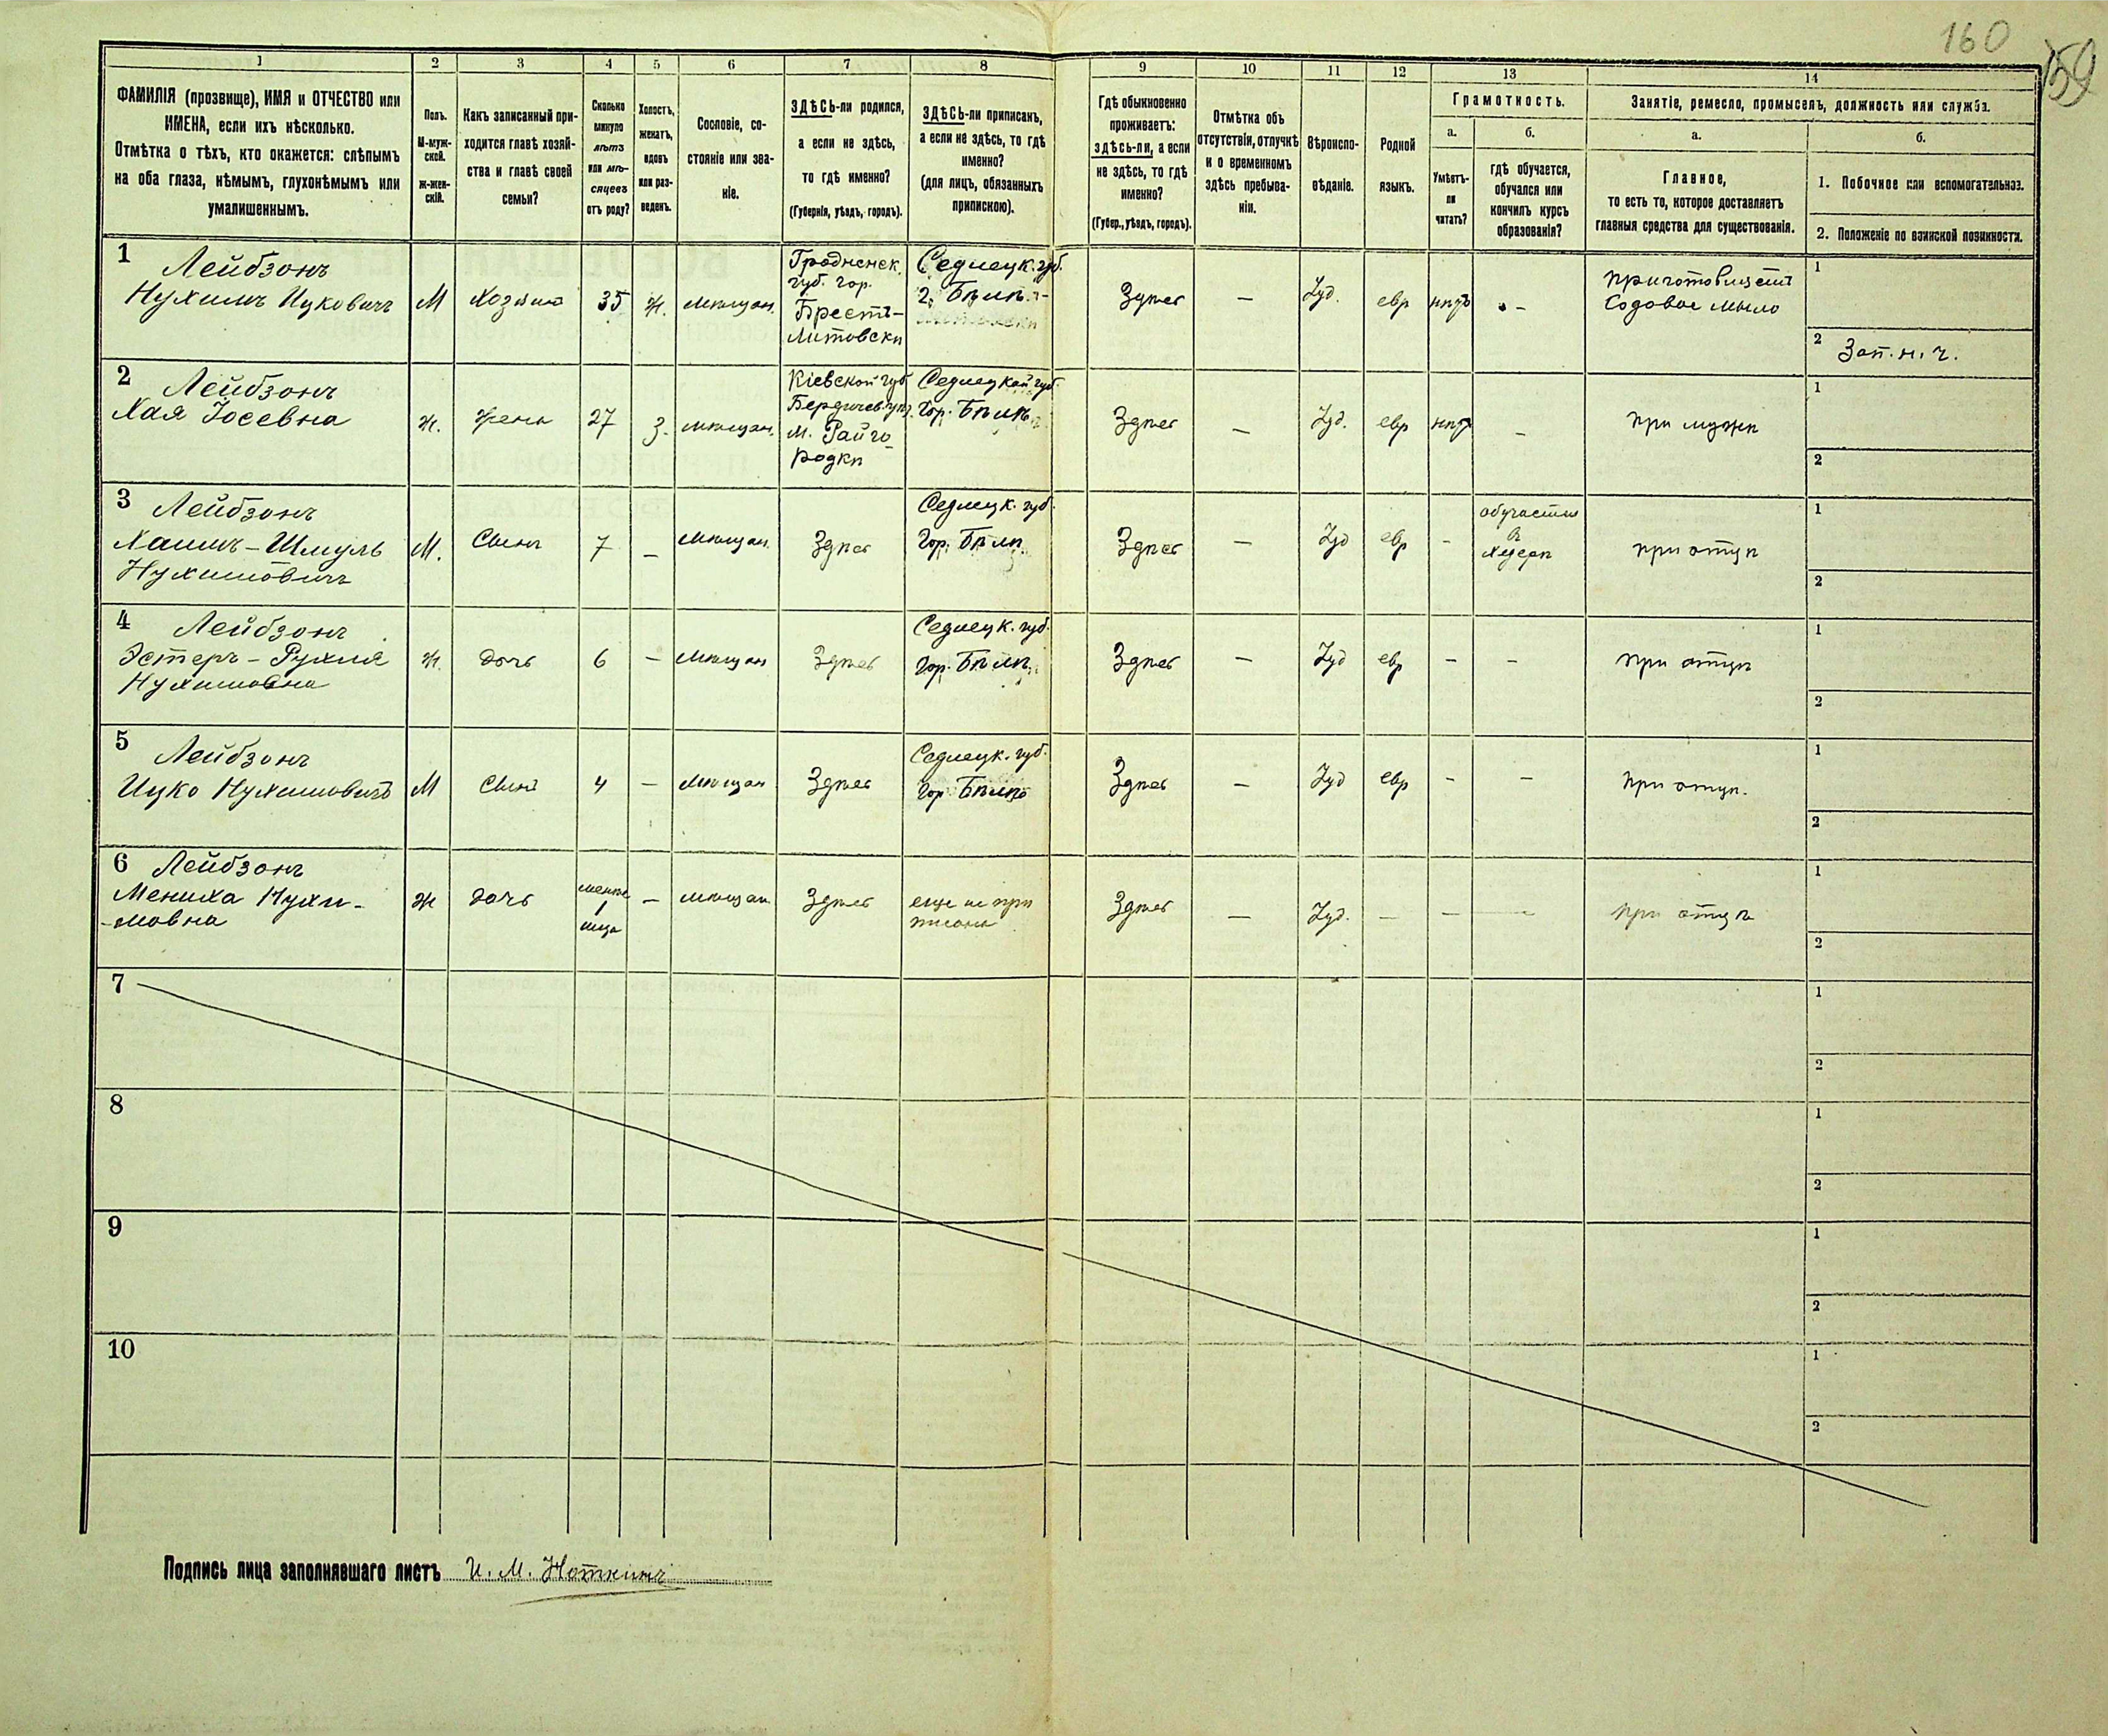 160
159
1
2
3
4
5
6
7
8
9
10
11
12
13
14
ФАМИЛІЯ (прозвище), ИМЯ и ОТЧЕСТВО или
ИМЕНА, если ихъ нѣсколько.
Отмѣтка о тѣхъ, кто окажется: слѣпымъ
на оба глаза, нѣмымъ, глухонѣмымъ или
умалишеннымъ.
Полъ.
М-муж-
ской.
Ж-жен-
скій.
Какъ записанный при-
ходится главѣ хозяй-
ства и главѣ своей
семьи?
Сколько
минуло
лѣтъ
или мѣ-
сяцевъ
отъ роду?
Холостъ,
женатъ,
вдовъ
или раз-
веденъ.
Сословіе, со-
стояніе или зва-
ніе.
ЗДѢСЬ-ли родился,
а если не здѣсь,
то гдѣ именно?
(Губернія, уѣздъ, городъ).
ЗДѢСЬ-ли приписанъ,
а если не здѣсь, то гдѣ
именно?
(для лицъ, обязанныхъ
припискою).
Гдѣ обыкновенно
проживаетъ:
здѣсь-ли, а если
не здѣсь, то гдѣ
именно?
(Губер., уѣздъ, городъ).
Отмѣтка объ
отсутствіи, отлучкѣ
и о временномъ
здѣсь пребыва-
ніи.
Вѣроиспо-
вѣданіе.
Родной
языкъ.
Грамотность.
а.
Умѣетъ-
ли
читать?
б.
гдѣ обучается,
обучался или
кончилъ курсъ
образованія?
Занятіе, ремесло, промыселъ, должность или служба.
а.
Главное,
то есть то, которое доставляетъ
главныя средства для существованія.
б.
1. Побочное или вспомогательное.
2. Положеніе по воинской повинности.
1
Лейбзонъ
Нухимъ Ицковичъ
М
Хозяинъ
35
ж.
мѣщан.
Гродненск.
губ. гор.
Брестъ-
Литовскѣ
Седлецк. губ.
г. Бѣлѣ
Здѣсь
—
Іуд.
евр
нѣтъ
-
Содовое мыло
1
2 Зап. н. ч.
2
Лейбзонъ
Хая Іосевна
ж.
жена
27
з.
мѣщан.
Кіевской губ
Бердичев. уѣз.
м. Райго-
родкѣ
Седлецкой губ.
Гор. Бѣлѣ
Здѣсь
—
Іуд.
евр
нѣт
—
при мужѣ
1
2
3
Лейбзонъ
Хаимъ-Шмуль
Нухимовичъ
М.
Сынъ
7
—
Мѣщан.
Здѣсь
Седлецк. губ.
Гор. Бѣлѣ
Здѣсь
—
Іуд
евр
-
обучается
в
Хедерѣ
при отцѣ
1
2
4
Лейбзонъ
Эстеръ-Рухля
Нухимовна
ж.
дочь
6
—
Мѣщан
Здѣсь
Седлецк. губ.
Гор. Бѣлѣ
Здѣсь
—
Іуд
евр
-
-
при отцѣ
1
2
5
Лейбзонъ
Ицко Нухимовичъ
М
Сынъ
4
—
Мѣщан
Здѣсь
Седлецк. губ.
Гор Бѣлѣ
Здѣсь
—
Іуд
евр
-
-
при отцѣ.
1
2
6
Лейбзонъ
Мениха Нухи-
-мовна
ж
дочь
менѣе
1
мѣщан
—
Здѣсь
еще не при
писана
Здѣсь
—
Іуд.
—
—
—
при отцѣ
1
2
7
1
2
8
1
2
9
1
2
10
1
2
Подпись лица заполнявшаго листъ И. М. Ноткинъ